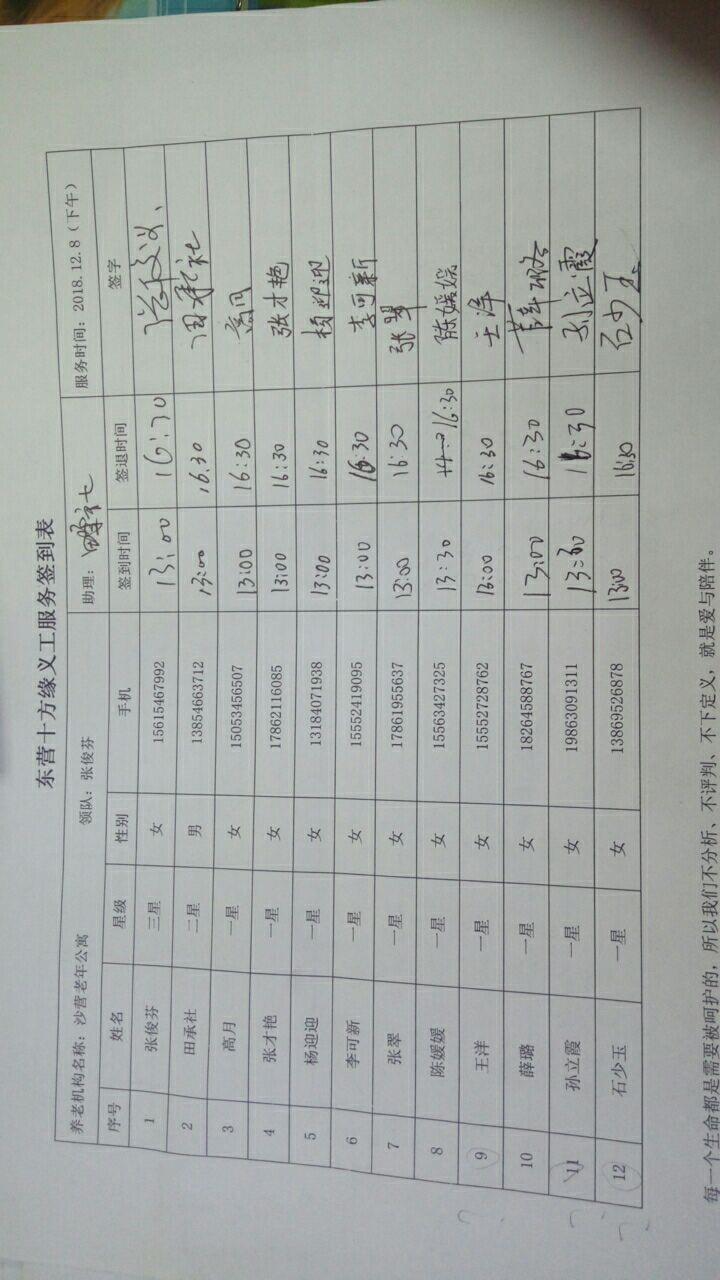 东营十方缘义工服务签到表
养老机构名称：沙营老年公寓 领队：张俊芬 助理： 服务时间：2018.12.8（下午）
序号 姓名 星级 性别 手机 签到时间 签退时间 签字
1 张俊芬 三星 女 15615467992 13:00 16:30
2 田承社 二星 男 13854663712 13:00 16:30 田承社
3 高月 一星 女 15053456507 13:00 16:30 高月
4 张才艳 一星 女 17862116085 13:00 16:30 张才艳
5 杨迎迎 一星 女 13184071938 13:00 16:30 杨迎迎
6 李可新 一星 女 15552419095 13:00 16:30 李可新
7 张翠 一星 女 17861955637 13:00 16:30 张翠
8 陈媛媛 一星 女 15563427325 13:30 16:30 陈媛媛
9 王洋 一星 女 15552728762 13:00 16:30 王洋
10 薛璐 一星 女 18264588767 13:00 16:30 薛璐
11 孙立霞 一星 女 19863091311 13:30 16:30 孙立霞
12 石少玉 一星 女 13869526878 13:00 16:30 石少玉
每一个生命都是需要被呵护的，所以我们不分析、不评判、不下定义，就是爱与陪伴。